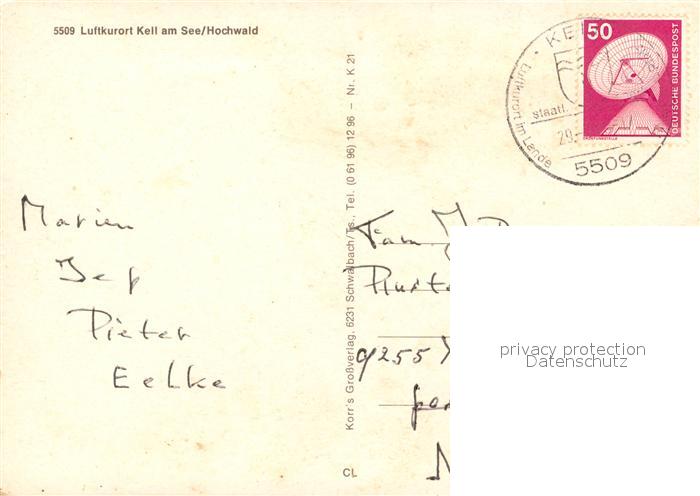 5509 Luftkurort Kell am See/Hochwald
50
DEUTSCHE BUNDESPOST
Luftkurort im Lande
staatl.
29.
5509
Korr's Großverlag, 6231 Schwalbach/Ts., Tel. (0 61 96) 12 96 – Nr. K 21
CL
Marien
Jef
Pieter
Eelke
Fam.
9255
privacy protection
Datenschutz